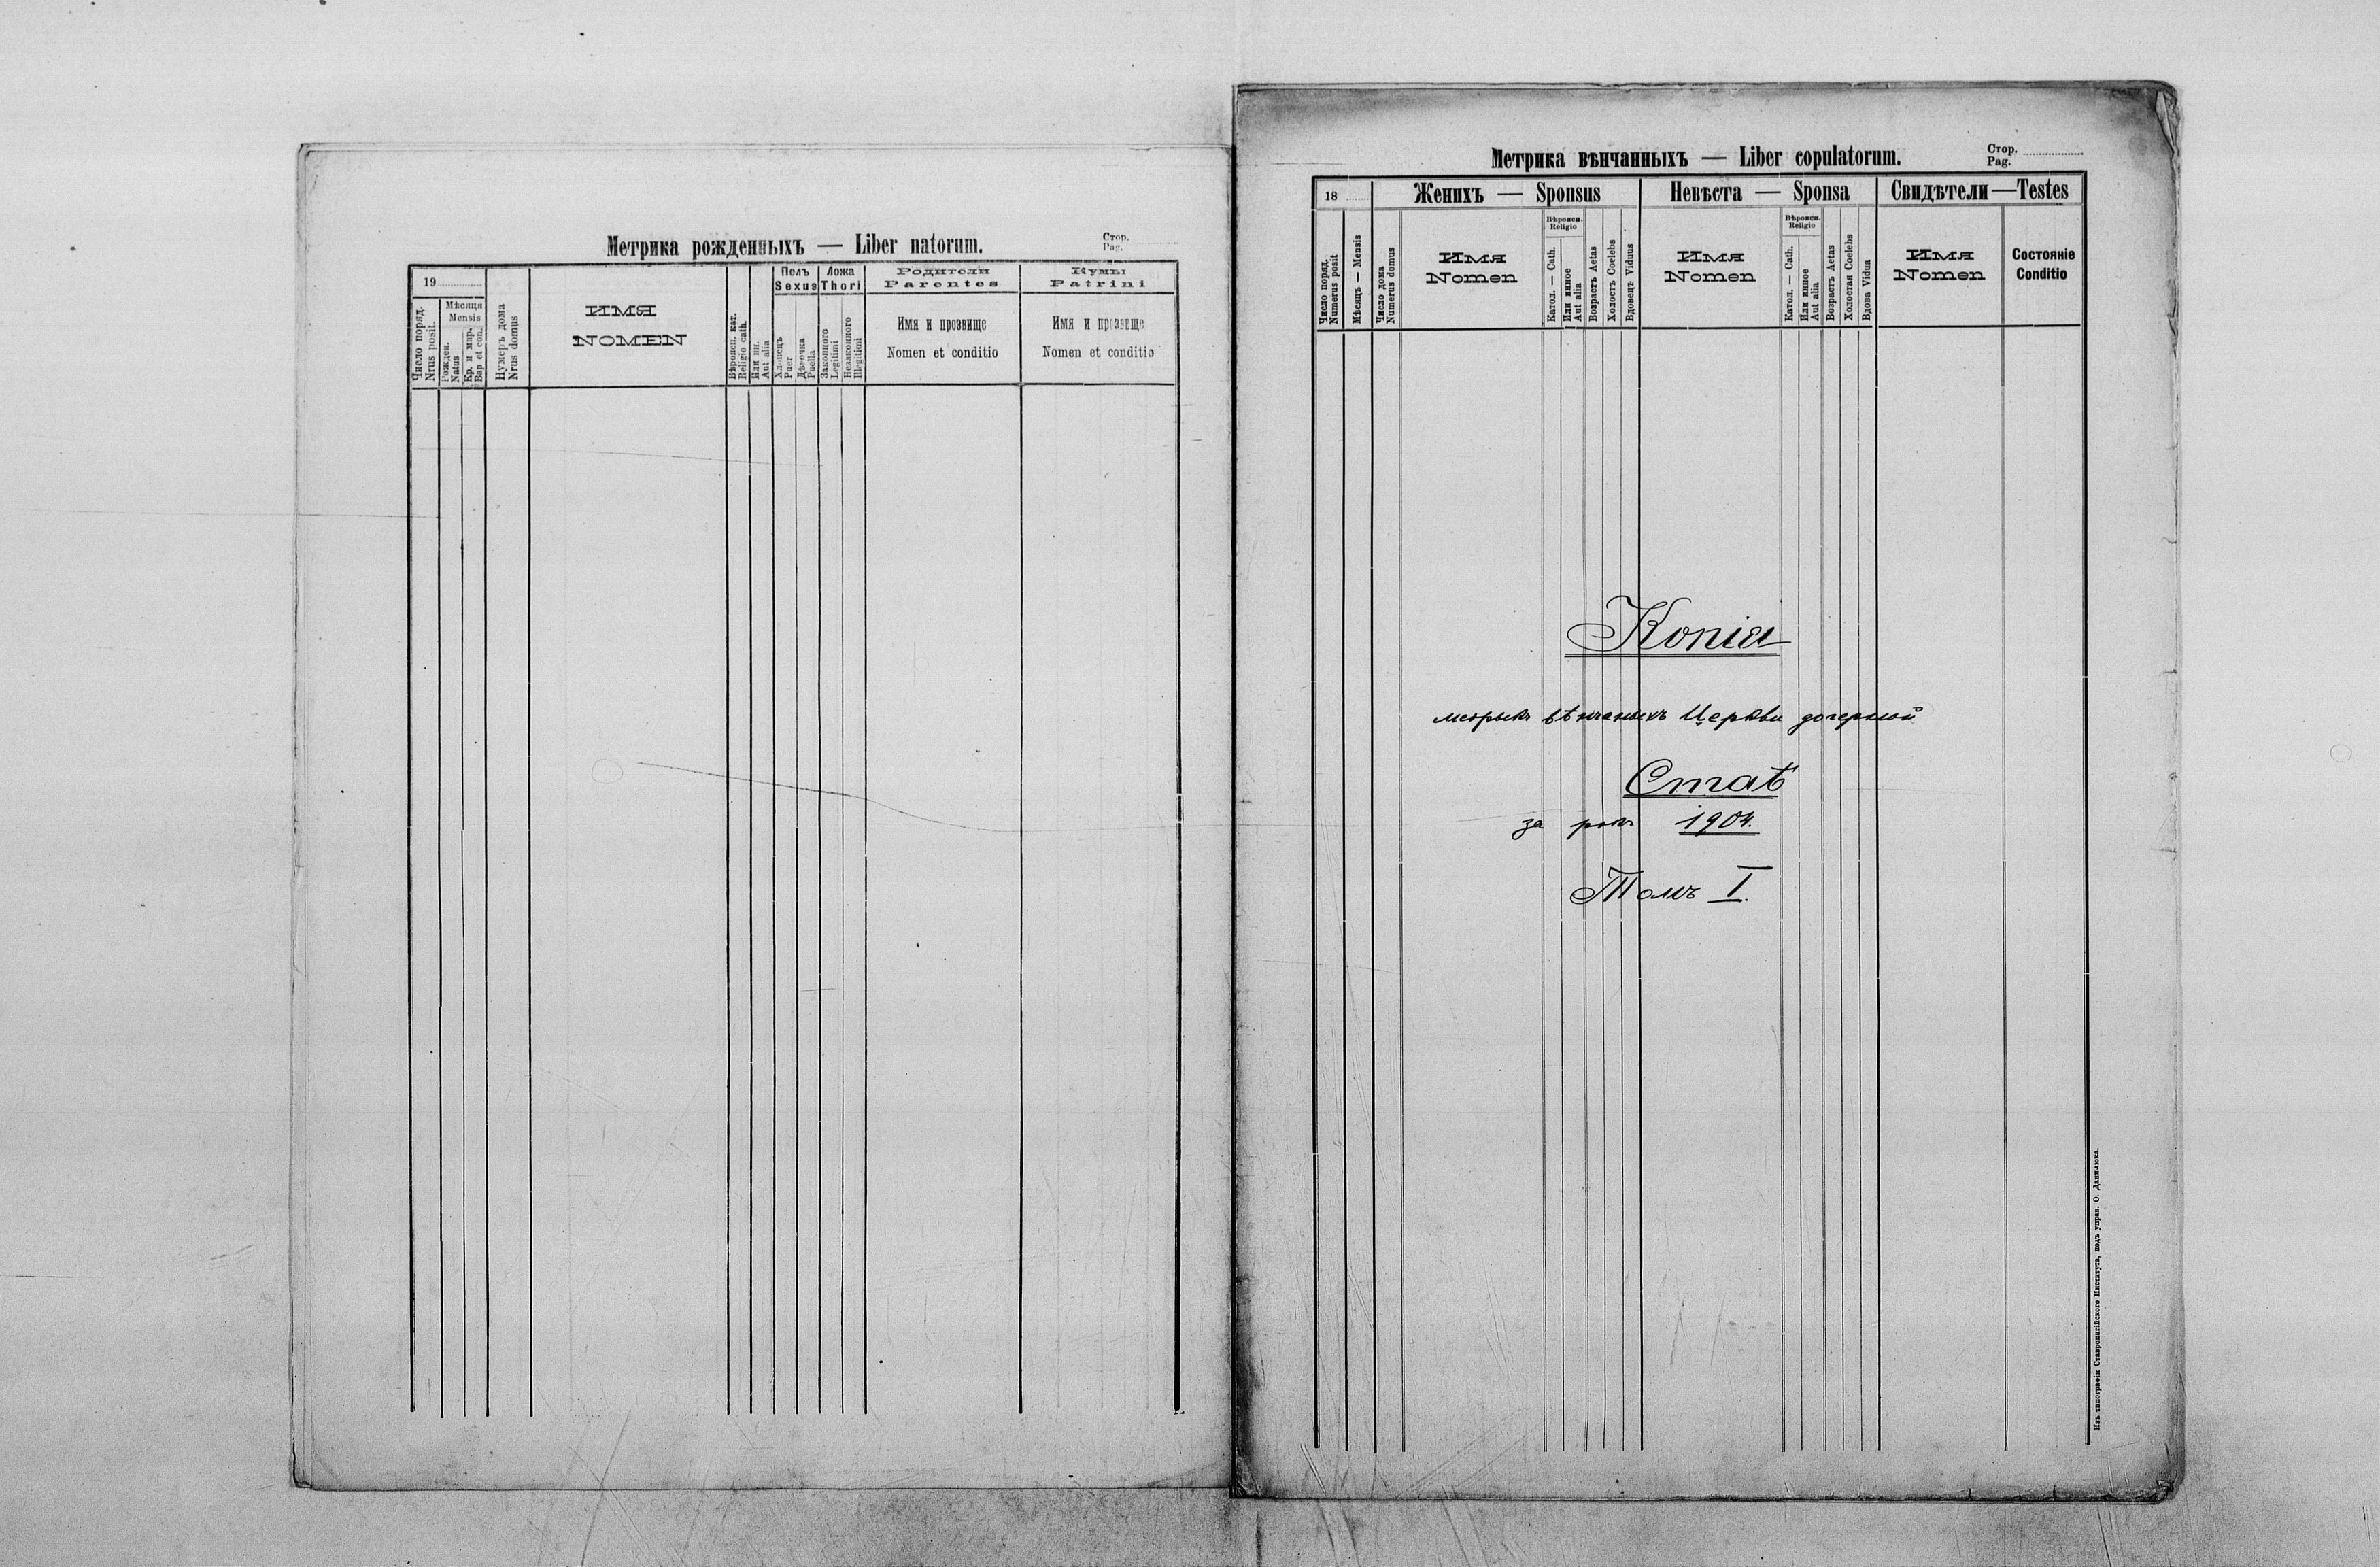 Метрика рожденныхъ — Liber natorum.
Стор.
Pag.
19
Число поряд.
Nrus posit.
Мѣсяця
Mensis
Рожден.
Natus
Кр. и мир.
Bap et con.
Нумеръ дома
Nrus domus
ИМЯ
NOMEN
Вѣроисп. кат.
Religio cath.
Или ин.
Aut alia
Полъ
Sexus
Хлопецъ
Puer
Дѣвочка
Puella
Ложа
Thori
Законного
Legitimi
Незаконного
Illegitimi
Родители
Parentes
Имя и прозвище
Nomen et conditio
Кумы
Patrini
Имя и прозвище
Nomen et conditio
Метрика вѣнчанныхъ — Liber copulatorum.
Стор.
Pag.
18
Число поряд.
Numerus posit
Мѣсяцъ — Mensis
Число дома
Numerus domus
Женихъ — Sponsus
Имя
Nomen
Вѣроисп.
Religio
Катол. — Cath.
Или инное
Aut alia
Возрастъ Aetas
Холостъ Coelebs
Вдовецъ Viduus
Невѣста — Sponsa
Имя
Nomen
Вѣроисп.
Religio
Катол. — Cath.
Или инное
Aut alia
Возрастъ Aetas
Холостая Coelebs
Вдова Vidua
Свидѣтели — Testes
Имя
Nomen
Состояніе
Conditio
Копія
метрыкъ вѣнчаныхъ Церкви дочерной
Ставѣ
за рокъ 1904.
Томъ I.
Изъ типографіи Ставропигійского Института, подъ управ. О. Данилюка.